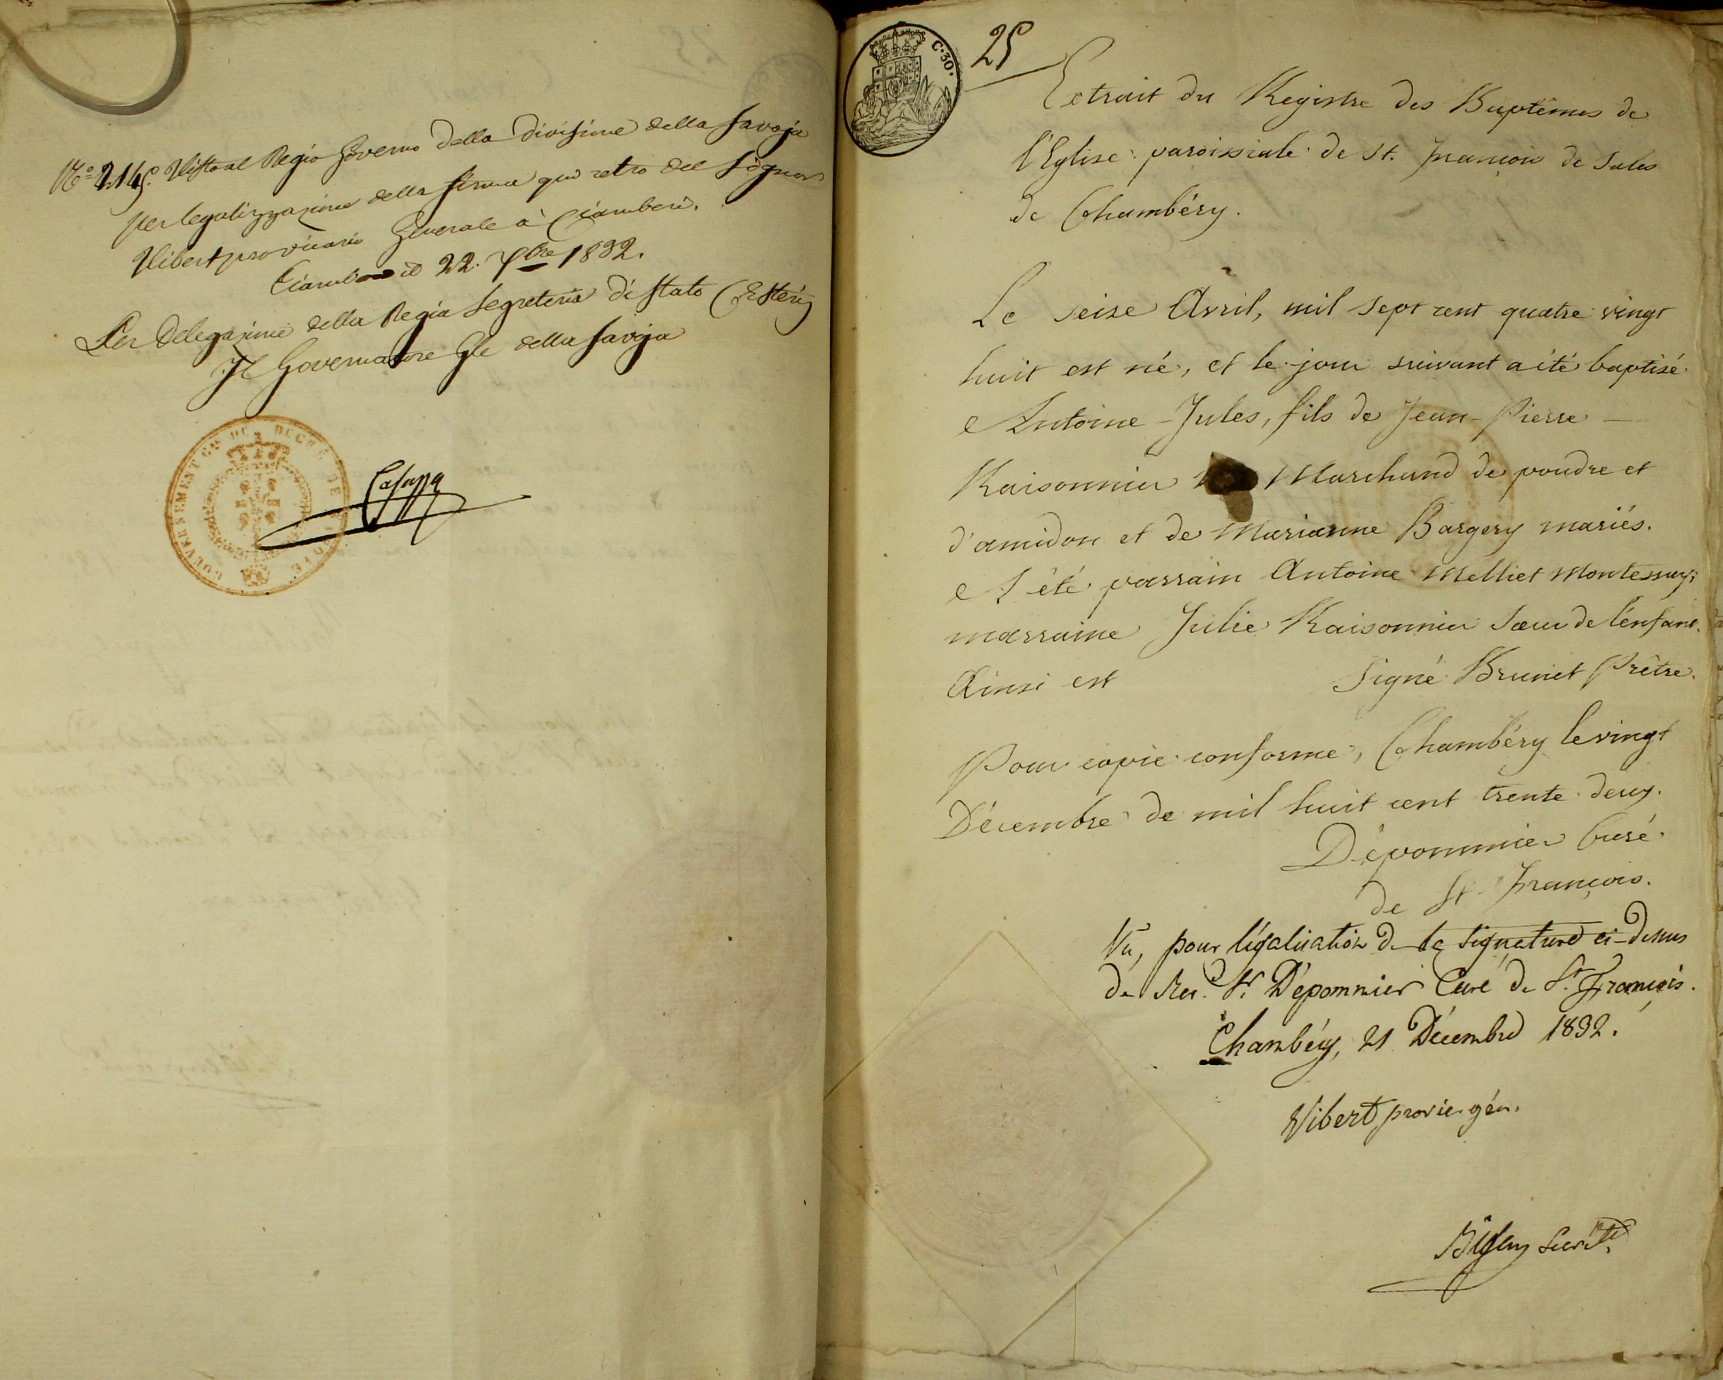 No 214. Visto al Regio Governo della Divisione della Savoja
per legalizzazione della firma quì retro del Signor
Vibert provicario Generale à Ciamberì.
Ciamberì il 22. Xbre 1832.
Per Delegazione della Regia Segreteria di Stato (Esteri)
Il Governatore Gle della Savoja
GOUVERNEMENT GN DU DUCHÉ DE
C. 30.
25
Extrait du Registre des Baptêmes de
l'Eglise paroissiale de St. François de Sales
de Chambéry.
Le seize Avril, mil sept cent quatre vingt
huit est né, et le jour suivant a été baptisé
Antoine-Jules, fils de Jean-Pierre
Raisonnier Marchand de poudre et
d'amidon et de Marianne Bargery mariés.
A été parrain Antoine Melliet Montessuy;
marraine Julie Raisonnier sœur de l'enfant.
Ainsi est Signé Brunet Prêtre.
Pour copie conforme, Chambéry le vingt
Décembre de mil huit cent trente deux.
Dépommier Curé
de St François.
Vu, pour légalisation de la signature ci-dessus
de Rd. Sr. Dépommier Curé de St. François.
Chambéry, 21 Décembre 1832.
Vibert provic. gén.